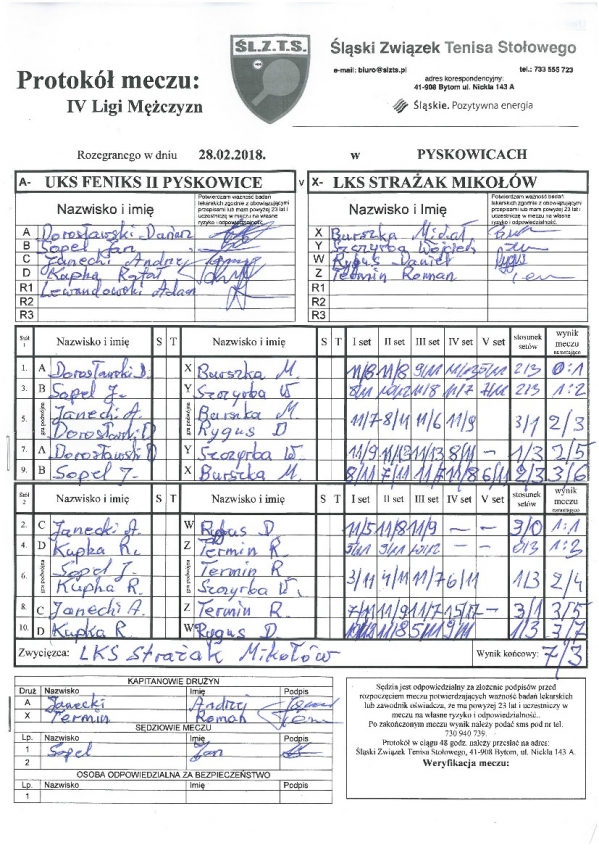 ŚL.Z.T.S.
Śląski Związek Tenisa Stołowego
e-mail: biuro@slzts.pl tel.: 733 555 723
adres korespondencyjny:
41-908 Bytom ul. Nickla 143 A
Śląskie. Pozytywna energia
Protokół meczu:
IV Ligi Mężczyzn
Rozegranego w dniu 28.02.2018. w PYSKOWICACH
A- UKS FENIKS II PYSKOWICE v X- LKS STRAŻAK MIKOŁÓW
Nazwisko i Imię
Potwierdzam ważność badań lekarskich zgodnie z obowiązującymi przepisami lub mam powyżej 23 lat i uczestniczę w meczu na własne ryzyko i odpowiedzialność.
Nazwisko i imię
Potwierdzam ważność badań lekarskich zgodnie z obowiązującymi przepisami lub mam powyżej 23 lat i uczestniczę w meczu na własne ryzyko i odpowiedzialność.
A Dorosławski Dariusz X Burszka Michał
B Sopel Jan Y Szczyrba Wojciech
C Janecki Andrzej W Rygus Daniel
D Kupka Rafał Z Termin Roman
R1 Lewandowski Adam R1
R2 R2
R3 R3
Stół 1 Nazwisko i imię S T Nazwisko i imię S T I set II set III set IV set V set stosunek setów wynik meczu narastająco
1. A Dorosławski D. X Burszka M. 11/8 11/8 9/11 2/3 0:1
3. B Sopel J. Y Szczyrba W 11/8 11/7 7/11 2/3 1:2
5. gra podwójna Janecki A. Burszka M.
Dorosławski D Rygus D 11/7 8/11 11/6 11/9 3/1 2/3
7. A Dorosławski D Y Szczyrba W. 11/9 11/13 8/11 – 1/3 2/5
9. B Sopel J. X Burszka M. 8/11 11/7 11/7 11/8 6/11 2/3 3/6
Stół 2 Nazwisko i imię S T Nazwisko i imię S T I set II set III set IV set V set stosunek setów wynik meczu narastająco
2. C Janecki A. W Rygus D 11/5 11/8 11/9 – – 3/0 1:1
4. D Kupka R. Z Termin R – – 0/3
6. gra podwójna Sopel J. Termin R
Kupha R. Szczyrba W. 3/11 4/11 11/7 6/11 1/3 2/4
8. C Janecki A. Z Termin R 7/11 11/9 11/7 – 3/1 3/5
10. D Kupka R W Rygus D. 11/8 5/11 1/3 3/7
Zwycięzca: LKS Strażak Mikołów Wynik końcowy: 7/3
KAPITANOWIE DRUŻYN
Druż Nazwisko Imię Podpis
A Janecki Andrzej
X Termin Roman
SĘDZIOWIE MECZU
Lp. Nazwisko Imię Podpis
1 Sopel Jan
2
OSOBA ODPOWIEDZIALNA ZA BEZPIECZEŃSTWO
Lp. Nazwisko Imię Podpis
1
Sędzia jest odpowiedzialny za złożenie podpisów przed
rozpoczęciem meczu potwierdzających ważność badań lekarskich
lub zawodnik oświadcza, że ma powyżej 23 lat i uczestniczy w
meczu na własne ryzyko i odpowiedzialność..
Po zakończonym meczu wynik należy podać sms pod nr tel.
730 940 739.
Protokół w ciągu 48 godz. należy przesłać na adres:
Śląski Związek Tenisa Stołowego, 41-908 Bytom, ul. Nickla 143 A.
Weryfikacja meczu: